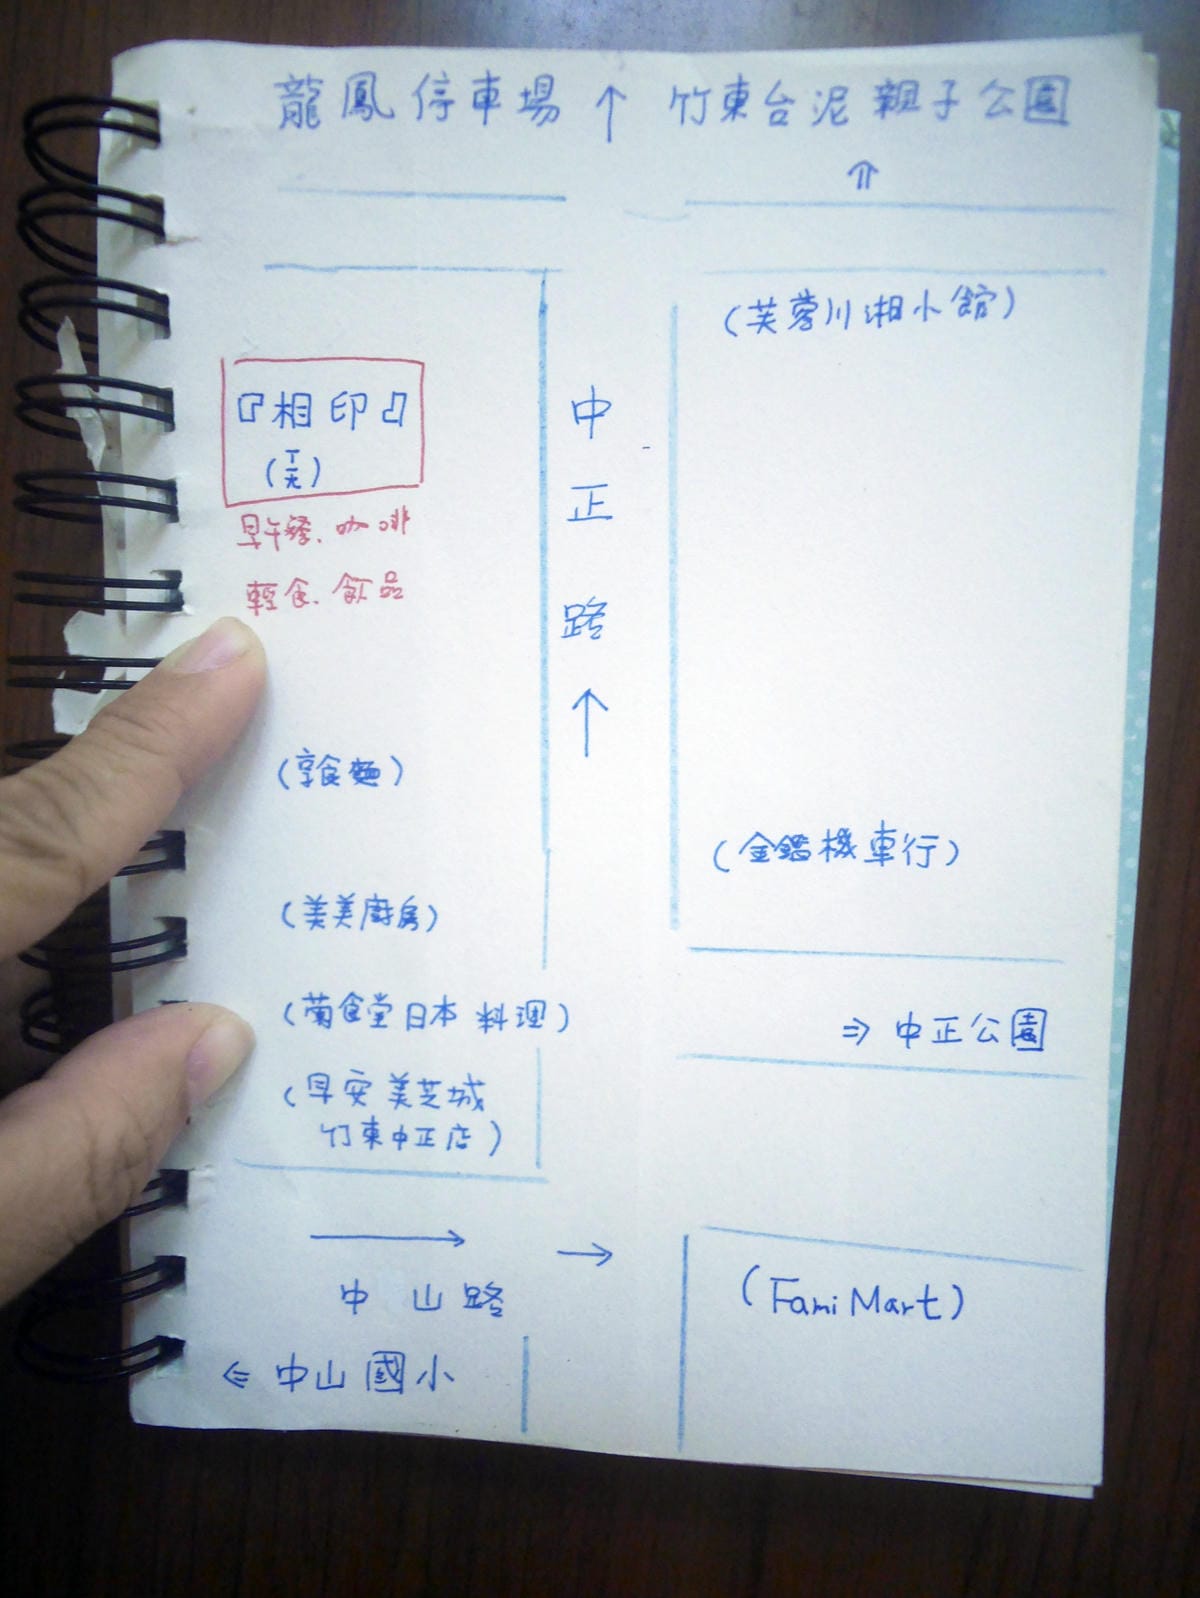 龍鳳停車場 ↑ 竹東台泥親子公園
⇑
(芙蓉川湘小館)
『相印』
早午餐、咖啡
輕食、飲品
中正路
↑
(享食麵)
(金鑑機車行)
(美美廚房)
(蘭食堂日本料理)
⇒ 中正公園
(早安美芝城
竹東中正店)
→ →
中山路
(FamiMart)
⇐ 中山國小